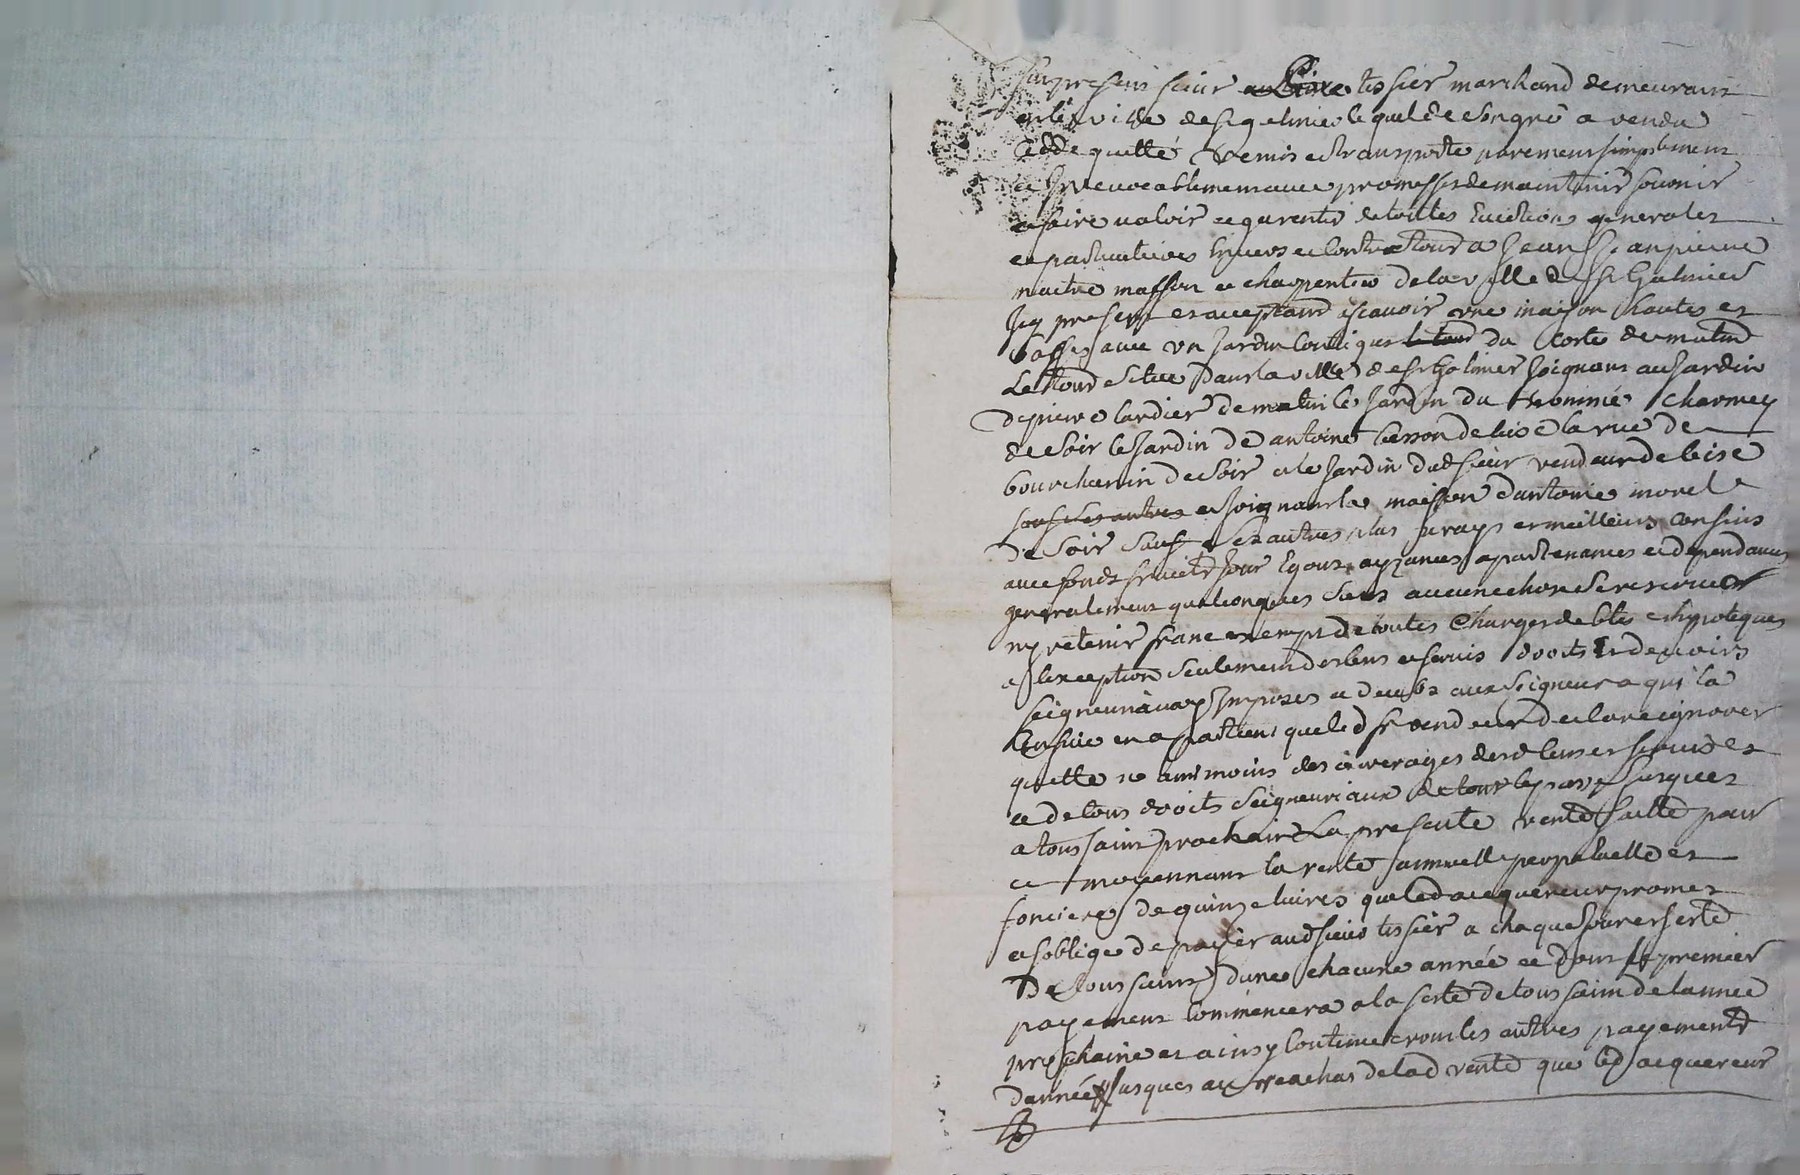 fut present sieur tissier marchand demeurant
en la ville de st galmier lequel de son gré a vendu
cedde quitté remis et transporte purement simplement
et Irrevocablement avec promesses de maintenir fournir
et faire valoir et garentir de toutes Evictions generales
et particulieres Envers et Contre tout a Jean
maitre masson et charpentier de la ville de St Galmier
Icy present et acceptant scavoir une maison hautes et
basses avec un Jardin Contigue du Costé de matin
Le tout situé dans la ville de St Galmier Joignant au Jardin
de pierre lardier de matin le Jardin du nommé charmey
de soir le Jardin de antoine besson de bise la rue de
bourchanin de soir et le Jardin dud sieur vendeur de bise
sauf ses autres et Joignant la maison dantoine morel
de soir sauf ses autres plus vrays et meilleurs confins
avec fonds fruits Jour Egouts ayzances apartenances et dependances
generalement quelconques sans aucune chose se reserver
ny retenir franc exempt de toutes Charges debtes et hypoteques
a lexception seulement des cens et servis droits Et devoirs
seigneuriaux Imposés et deubs aux seigneurs a qui la
Censive en apartient que led sr vendeur declare ignorer
quitte neanmoins des arrerages desd cens et servis et
et de tous droits seigneuriaux de tout le passé Jusques
a toussaint prochain La presente vente faitte pour
et moyennant la rente annuelle perpetuelle et
fonciere de quinze livres que led acquereur promet
et soblige de payer aud sieur tissier a chaque Jour et feste
De toussaint dune chacune année et dont le premier
payement Commencera a la feste de toussaint de lannée
prochaine et ainsy Continueront les autres payements
dannée Jusques au reachat de lad rente que led acquereur